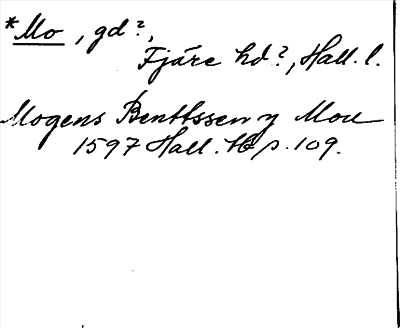 *Mo, gd?,
Fjäre hd?, Hall. l.
Mogens Benttssen y Mou
1597 Hall. tb p. 109.